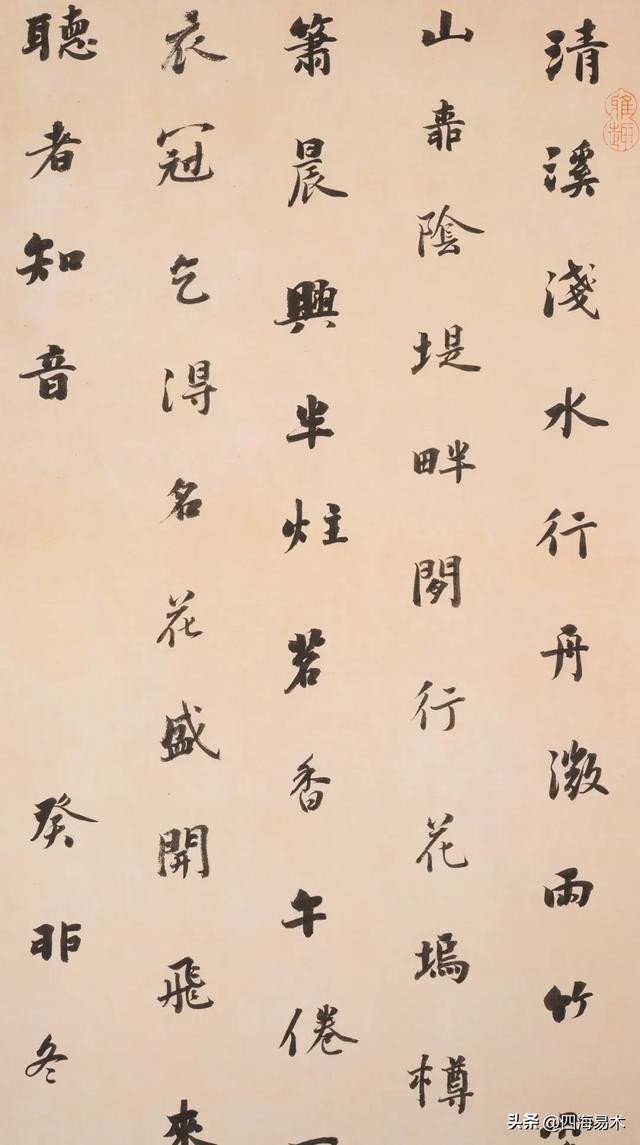 清溪淺水行舟微雨竹
山桺陰堤畔閒行花塢樽
簫晨興半炷茗香午倦一
衣冠乞得名花盛開飛來
聽者知音 癸卯冬
头条 @四海易木